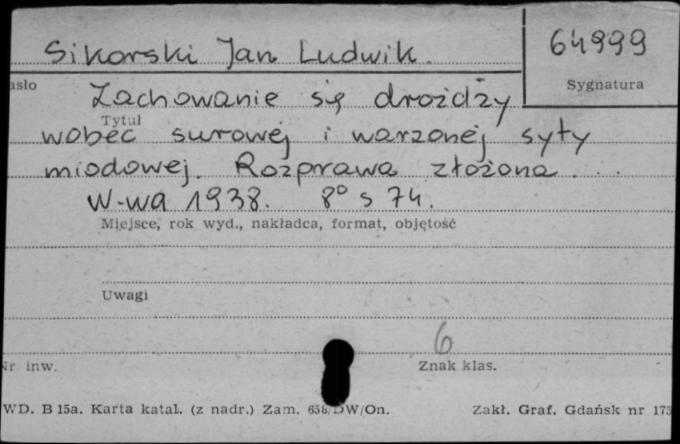 Sikorski Jan Ludwik.
64999
asło
Sygnatura
Zachowanie się drożdży
Tytuł
wobec surowej i warzonej syty
miodowej. Rozprawa złożona . . .
W-wa 1938. 8° s 74.
Miejsce, rok wyd., nakładca, format, objętość
Uwagi
6
Nr inw.
Znak klas.
WD. B 15a. Karta katal. (z nadr.) Zam. 658/DW/On.
Zakł. Graf. Gdańsk nr 173